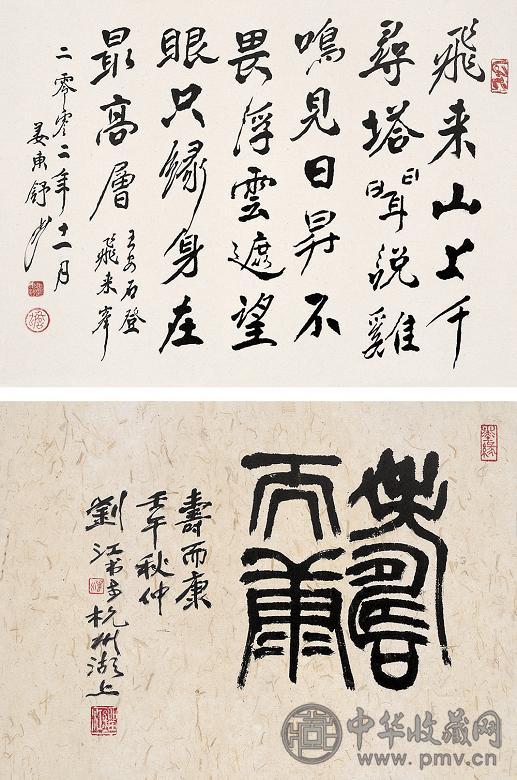 飛来山上千
尋塔聞説雞
鳴見日昇不
畏浮雲遮望
眼只緣身在
最高層
王安石登
飛来峯
二零零二年十一月
姜東舒書
壽
而康
壽而康
壬午秋仲
劉江书于杭州湖上
中华收藏网
www.pmv.cn